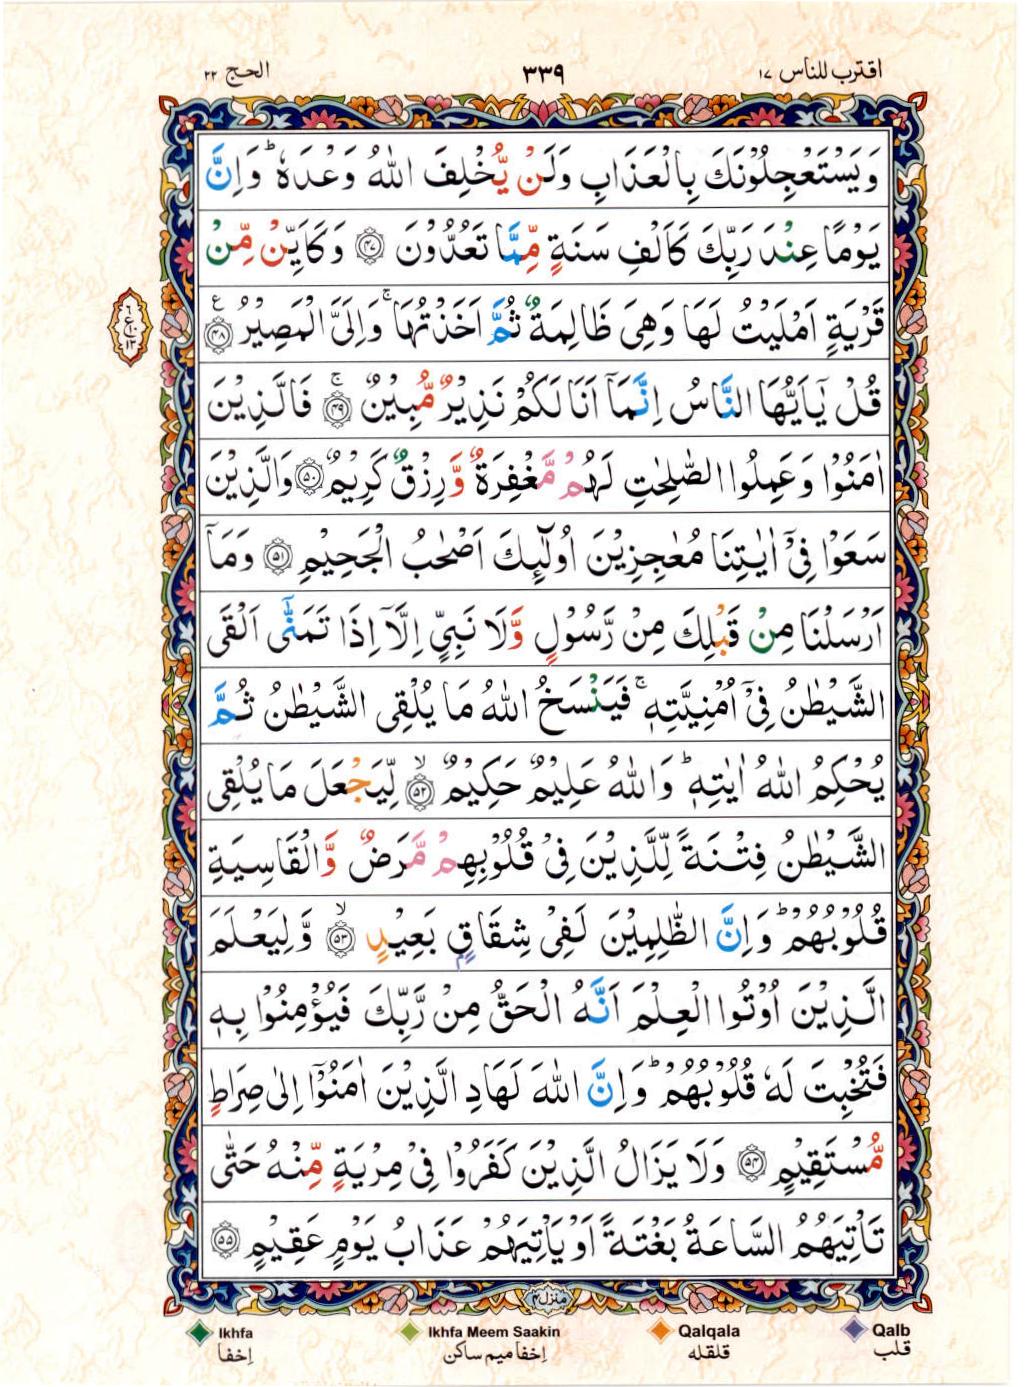 اقترب للناس ١٧ ٣٣٩ الحج ٢٢
وَيَسْتَعْجِلُوْنَكَ بِالْعَذَابِ وَلَنْ يُّخْلِفَ اللّٰهُ وَعْدَهٗ ؕ وَاِنَّ
يَوْمًا عِنْدَ رَبِّكَ كَاَلْفِ سَنَةٍ مِّمَّا تَعُدُّوْنَ ﴿۴۷﴾ وَكَاَيِّنْ مِّنْ
قَرْيَةٍ اَمْلَيْتُ لَهَا وَهِىَ ظَالِمَةٌ ثُمَّ اَخَذْتُهَا ۚ وَاِلَىَّ الْمَصِيْرُ ﴿۴۸﴾ ع
قُلْ يٰۤاَيُّهَا النَّاسُ اِنَّمَاۤ اَنَا لَكُمْ نَذِيْرٌ مُّبِيْنٌ ۚ ﴿۴۹﴾ فَالَّذِيْنَ
اٰمَنُوْا وَعَمِلُوا الصّٰلِحٰتِ لَهُمْ مَّغْفِرَةٌ وَّرِزْقٌ كَرِيْمٌ ﴿۵۰﴾ وَالَّذِيْنَ
سَعَوْا فِىْۤ اٰيٰتِنَا مُعٰجِزِيْنَ اُولٰٓئِكَ اَصْحٰبُ الْجَحِيْمِ ﴿۵۱﴾ وَمَاۤ
اَرْسَلْنَا مِنْ قَبْلِكَ مِنْ رَّسُوْلٍ وَّلَا نَبِىٍّ اِلَّاۤ اِذَا تَمَنّٰٓى اَلْقَى
الشَّيْطٰنُ فِىْۤ اُمْنِيَّتِهٖ ۚ فَيَنْسَخُ اللّٰهُ مَا يُلْقِى الشَّيْطٰنُ ثُمَّ
يُحْكِمُ اللّٰهُ اٰيٰتِهٖ ؕ وَاللّٰهُ عَلِيْمٌ حَكِيْمٌ ۙ ﴿۵۲﴾ لِّيَجْعَلَ مَا يُلْقِى
الشَّيْطٰنُ فِتْنَةً لِّلَّذِيْنَ فِىْ قُلُوْبِهِمْ مَّرَضٌ وَّالْقَاسِيَةِ
قُلُوْبُهُمْ ؕ وَاِنَّ الظّٰلِمِيْنَ لَفِىْ شِقَاقٍۭ بَعِيْدٍ ۙ ﴿۵۳﴾ وَّلِيَعْلَمَ
الَّذِيْنَ اُوْتُوا الْعِلْمَ اَنَّهُ الْحَقُّ مِنْ رَّبِّكَ فَيُؤْمِنُوْا بِهٖ
فَتُخْبِتَ لَهٗ قُلُوْبُهُمْ ؕ وَاِنَّ اللّٰهَ لَهَادِ الَّذِيْنَ اٰمَنُوْۤا اِلٰى صِرَاطٍ
مُّسْتَقِيْمٍ ﴿۵۴﴾ وَلَا يَزَالُ الَّذِيْنَ كَفَرُوْا فِىْ مِرْيَةٍ مِّنْهُ حَتّٰى
تَاْتِيَهُمُ السَّاعَةُ بَغْتَةً اَوْ يَاْتِيَهُمْ عَذَابُ يَوْمٍ عَقِيْمٍ ﴿۵۵﴾
منزل ۴
Ikhfa Ikhfa Meem Saakin Qalqala Qalb
اِخفا اِخفا میم ساکن قلقله قلب